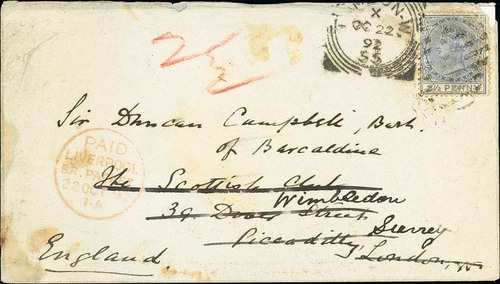 2½
X
OC 22
92
2½ PENNY
Sir Duncan Campbell, Bart.
of Barcaldine
PAID
LIVERPOOL
BR. PACKET
22 OC
1 A
The Scottish Club
Wimbledon
39 Dover Street
Surrey
Piccadilly
London, W
England